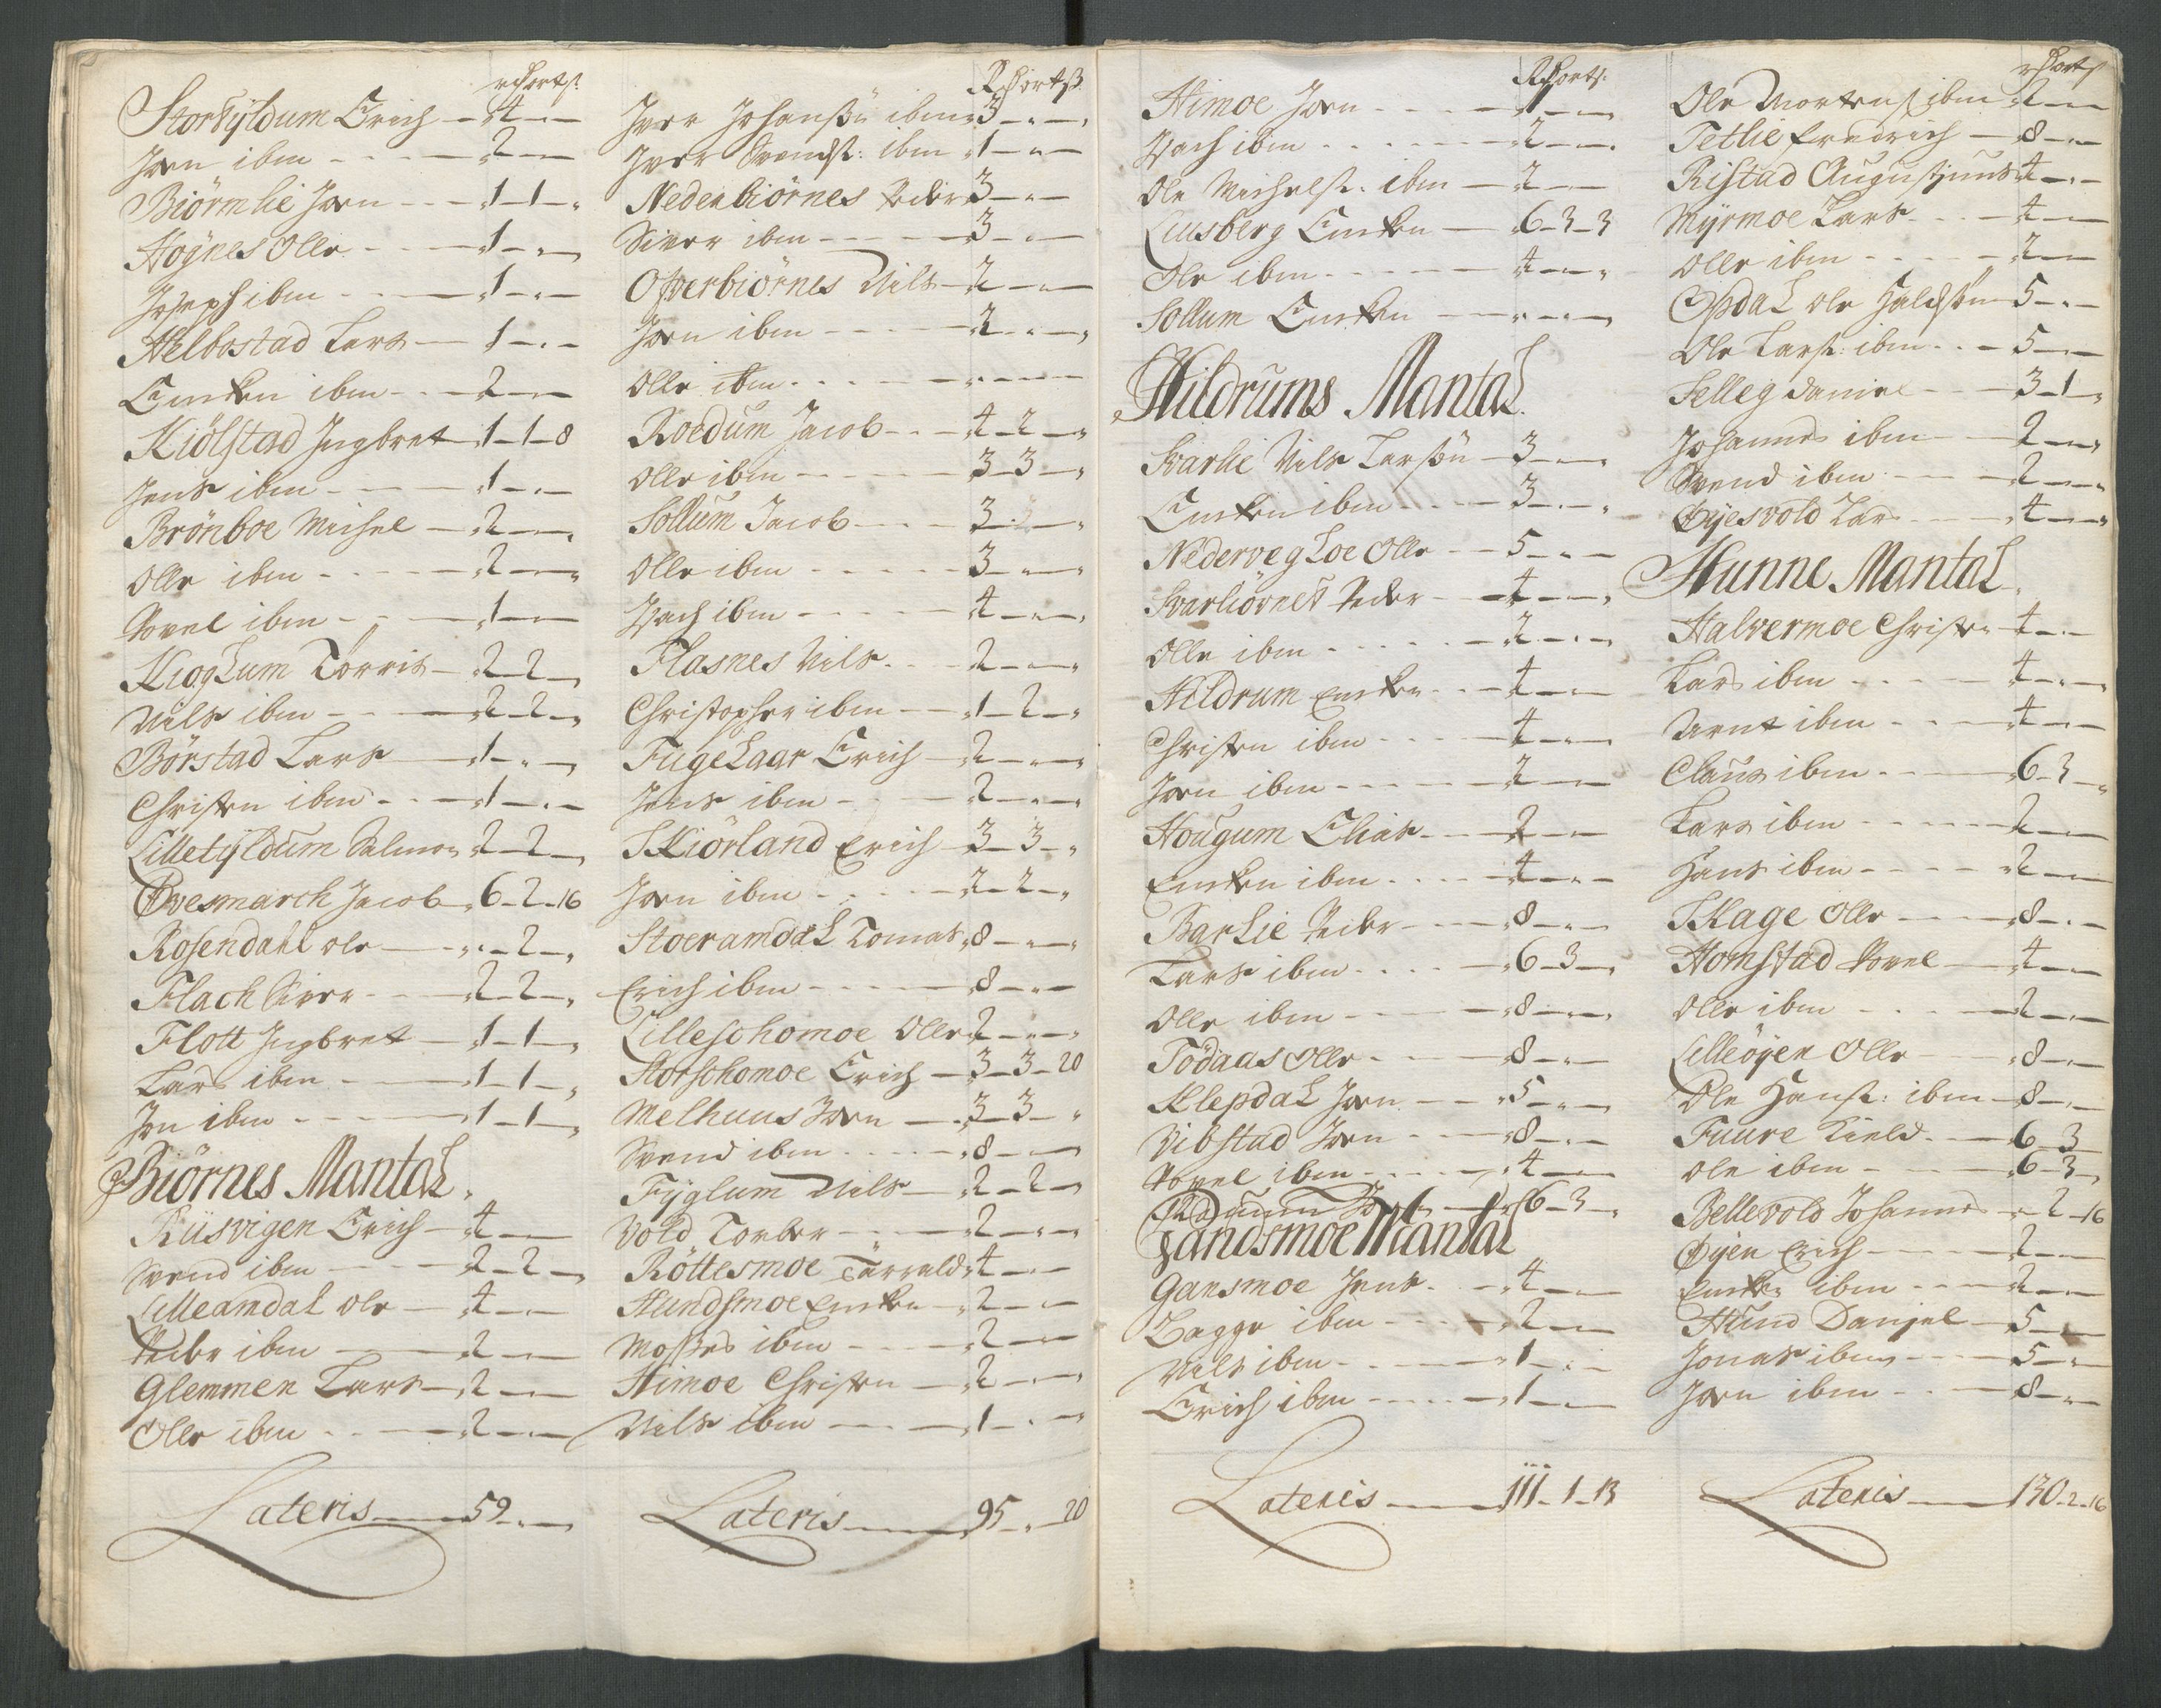 Stortÿldum Erich - 4 - -
Joen ibm - - - 2 - -
Biörmlie Joen - - 1 - 1 -
Høÿnes Olle - - 1 - -
Joseph ibm - - 1 - -
Kelbostad Lars - 1 - -
Encken ibm - - 2 - -
Kiölstad Ingbret 1 - 1 - 8
Jens ibm - - 1 - -
Brönboe Michel - 2 - -
Olle ibm - - - 2 - -
Povel ibm - - 1 - -
Kioglum Törris - 2 - 2 -
Nils ibm - - 2 - 2 -
Börstad Lars - 1 - -
Christen ibm - - 1 - -
Lilletÿldum Salmon 2 - 2 -
Øvesmarch Jacob 6 - 2 - 16
Rosendahl ole - " - 2 -
Flach Siver - 2 - 2 -
Flott Ingbret - 1 - 1 -
Lars ibm - 1 - 1 -
Jon ibm - - 1 - 1 -
Biörnes Mantal
Kusvigen Erich - 4 - -
Svend ibm - - 2 - 2 -
Lilleamdal ole - 4 - -
Peder ibm - 2 - -
Glemmen Lars - 2 - -
Olle ibm - - 2 - -
Lateris 59 - -
Iver Johanßen ibm 3 - -
Iver Svendß: ibm 1 - -
Nedenbiörnes Peder 3 - -
Siver ibm - - 3 - -
Ofverbiörnes Nils - 2 - -
Joen ibm - - 2 - -
Olle ibm - - - - -
Roedum Jacob - - 4 - 2 -
Olle ibm - - 3 - 3 -
Sollum Jacob - - 3 - -
Olle ibm - - 3 - -
Isach ibm - - 4 - -
Flasnes Nils - - 2 - -
Christopher ibm - 1 - 2 -
Fugelaar Erich - 2 - -
Jens ibm - - 2 - -
Skiörland Erich - 3 - 3 -
Joen ibm - - 2 - 2 -
Stoeramdal Tomas 8 - -
Erich ibm - - 8 - -
Lilleschomoe Olle 2 - -
Storschomoe Erich - 3 - 3 - 20
Melhuus Joen - 3 - 3 -
Svend ibm - - 8 - -
Fÿglum Nils - 2 - 2 -
Vold Torber - - 2 - -
Röttesmoe Tarrald 4 - -
Hundsmoe Encken - 2 - -
Moßes ibm - - 2 - -
Himoe Christen - 2 - -
Nils ibm - - 1 - -
Lateris 95 - " - 20
Himoe Joen - - 1 - -
Isach ibm - - 2 - -
Ole Michelß: ibm - 2 - -
Liusberg Encken - 6 - 3 - 3
Ole ibm - - - 4 - -
Sollum Encken - - - -
Hildrums Mantal
Svarlie Nils Larßön - 3 - -
Encken ibm - - 3 - -
Nedervegloe Olle - - 5 - -
Svarliörnet Peder - 4 - -
Olle ibm - - 2 - -
Hildrum Encken - - 4 - -
Christen ibm - - 4 - -
Joen ibm - - 2 - -
Hougum Elias - 2 - -
Encken ibm - - 4 - -
Barlie Peder - - 8 - -
Lars ibm - - 6 - 3 -
Olle ibm - - 8 - -
Tödaas Olle - - 8 - -
Klepdal Joen - - 5 - -
Vibstad Joen - - 8 - -
Povel ibm - - 4 - -
6 - 3 -
Gandsmoe Mantal
Gansmoe Jens - - 4 - -
Bagge ibm - - 2 - -
Nils ibm - - 1 - -
Erich ibm - - 1 - -
Lateris 111 - 1 - 13
Ole Mortenß ibm 2 - -
Tetlie Fredrich - 8 - -
Ristad Augustinus 4 - -
Myrmoe Lars - - 4 - -
Olle ibm - - 2 - -
Opdal ole Haldßön 5 - -
Ole Larß: ibm - - 5 - -
Selleg Daniel - - 3 - 1 -
Johannes ibm - 2 - -
Svend ibm - - 2 - -
Øÿesvold Lars - 4 - -
Hunne Mantal
Halvermoe Christen 4 - -
Lars ibm - - 4 - -
Arnt ibm - - 4 - -
Claus ibm - - 6 - 3 -
Lars ibm - - 2 - -
Hans ibm - - 2 - -
Skage Olle - - 8 - -
Homstad Povel - 4 - -
Olle ibm - - 2 - -
Lilleöÿen Olle 8 - -
Ole Hanß: ibm - 8 - -
Fuure Kield - - 6 - 3
Ole ibm - - 6 - 3 -
Bellevold Johannes - 2 - 16
Øÿen Erich - - 2 - -
Encken ibm - - 2 - -
Hund Danjel - 5 - -
Jonas ibm - - 5 - -
Joen ibm - - 8 - -
Lateris 130 - 2 - 16